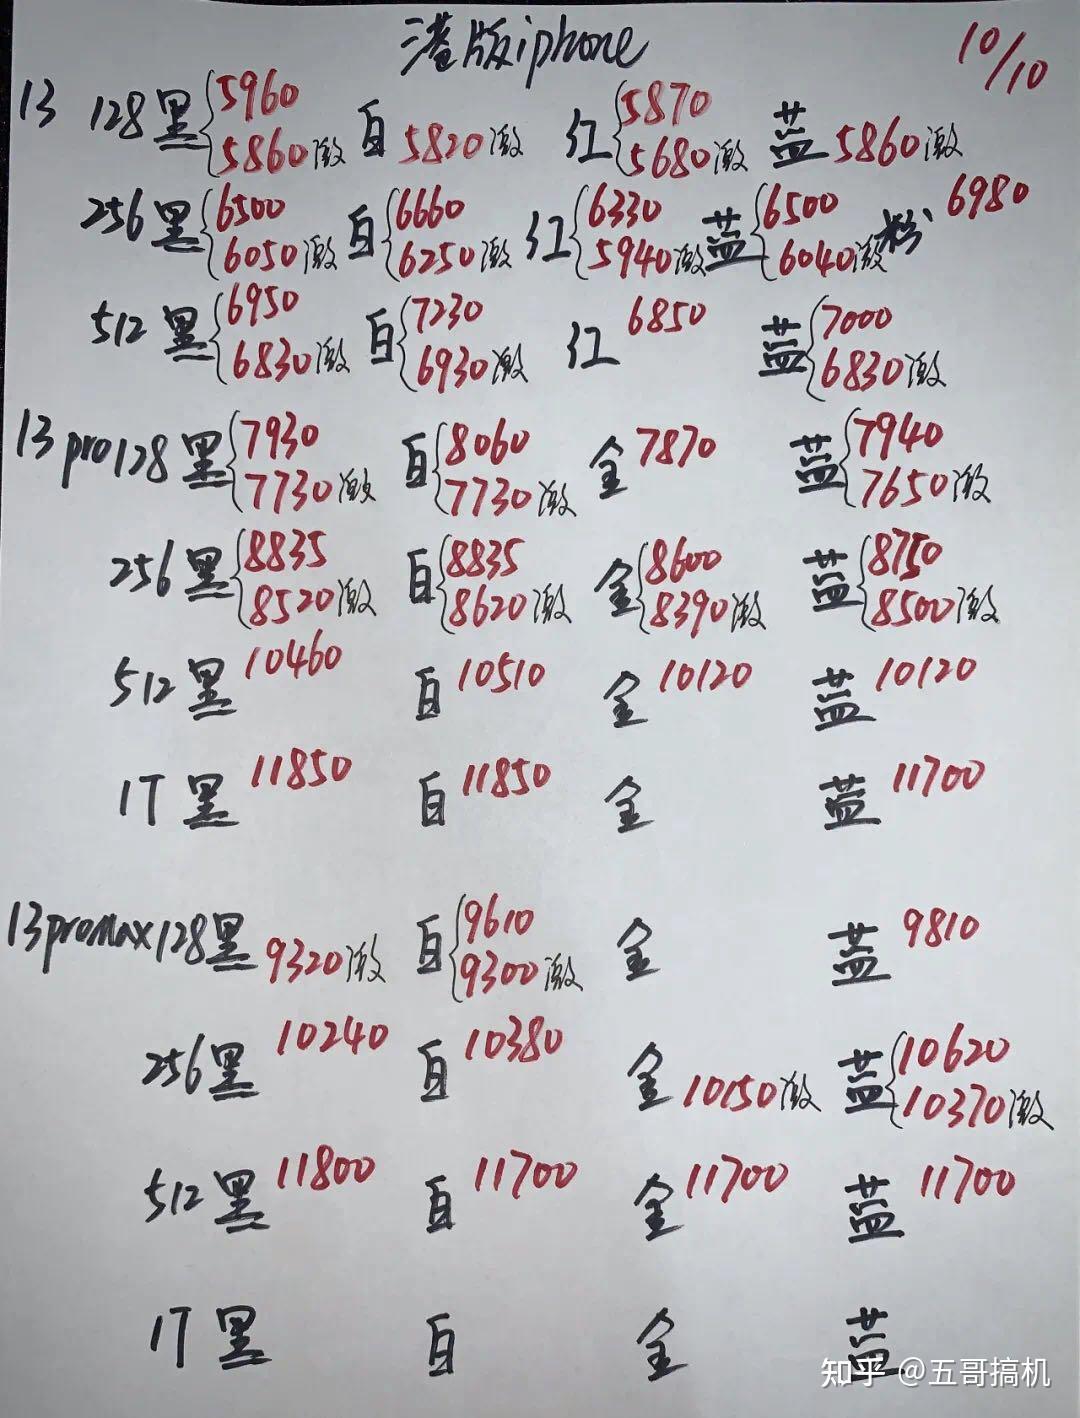 港版iphone 10/10
13 128黑 5960 5860激 白 5820激 红 5870 5680激 蓝 5860激
256黑 6500 6050激 白 6660 6250激 红 6330 5940激 蓝 6500 6040激 粉 6980
512黑 6950 6830激 白 7230 6930激 红 6850 蓝 7000 6830激
13pro128黑 7930 7730激 白 8060 7730激 金 7870 蓝 7940 7650激
256黑 8835 8520激 白 8835 8620激 金 8600 8390激 蓝 8750 8500激
512黑 10460 白 10510 金 10120 蓝 10120
1T黑 11850 白 11850 金 蓝 11700
13promax128黑 9320激 白 9610 9300激 金 蓝 9810
256黑 10240 白 10380 金 10150激 蓝 10620 10370激
512黑 11800 白 11700 金 11700 蓝 11700
1T黑 白 金 蓝
知乎 @五哥搞机